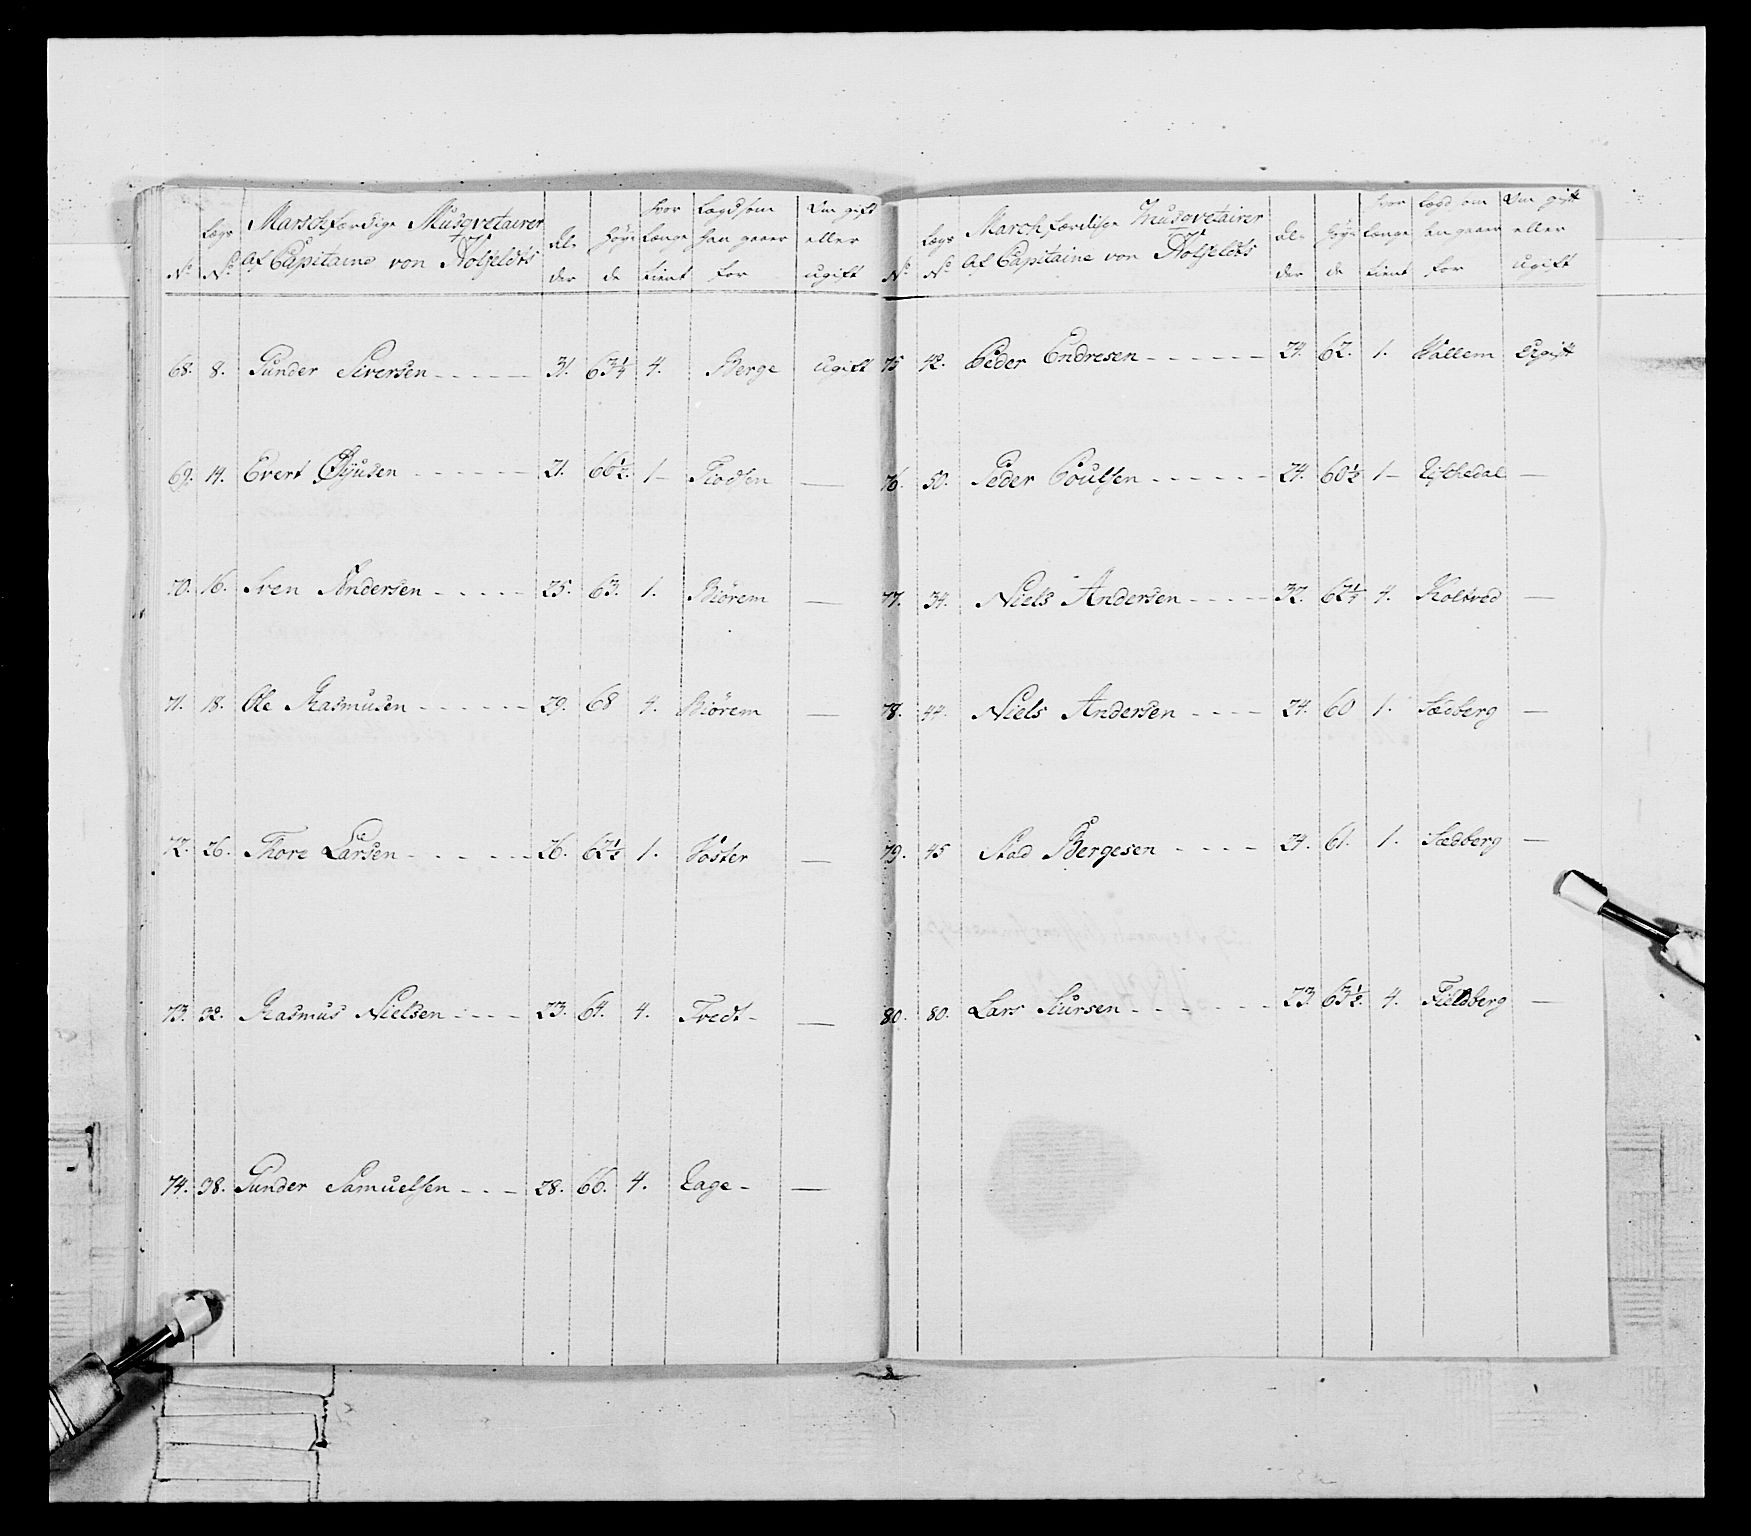 No. Lægs No. Marschfærdige Musqvetairer Af Capitaine von Kolfeldts Al- der Høy- de hvor længe tient Lægd som han gaaer for Om gift eller ugift
68. 8. Gunder Siversen 31. 63¼ 4. Berge Ugift
69. 14. Evert 21. 66½. 1 — —
70. 16. Sven Andersen 25. 63. 1. Biörem —
71. 18. Ole Rasmusen 29. 68 4. Biörem —
72. 26. Thore Larsen 26. 62½ 1. —
73. 32. Rasmus Nielsen 23. 64. 4. Tvedt —
74. 38. Gunder Samuelsen 28. 66. 4. Eage —
No. Lægs No. Marchfærdige Musqvetairer Af Capitaine von Kolfeldts Al- der Høy- de hvor længe tient Lægd som han gaaer for Om gift eller ugift
75 42. Peder Endresen 24. 62. 1. Vallem Ugift
76. 50. Peder Poulsen 24. 60½ 1 — —
77. 34. Niels Andersen 32. 62¼ 4. Koltved —
78. 44. Niels Andersen 24. 60 1. Sædberg —
79. 45 Bergesen 24. 61. 1. Sædberg —
80. 80. Lars Siursen 23 63½. 4. Fieldberg —